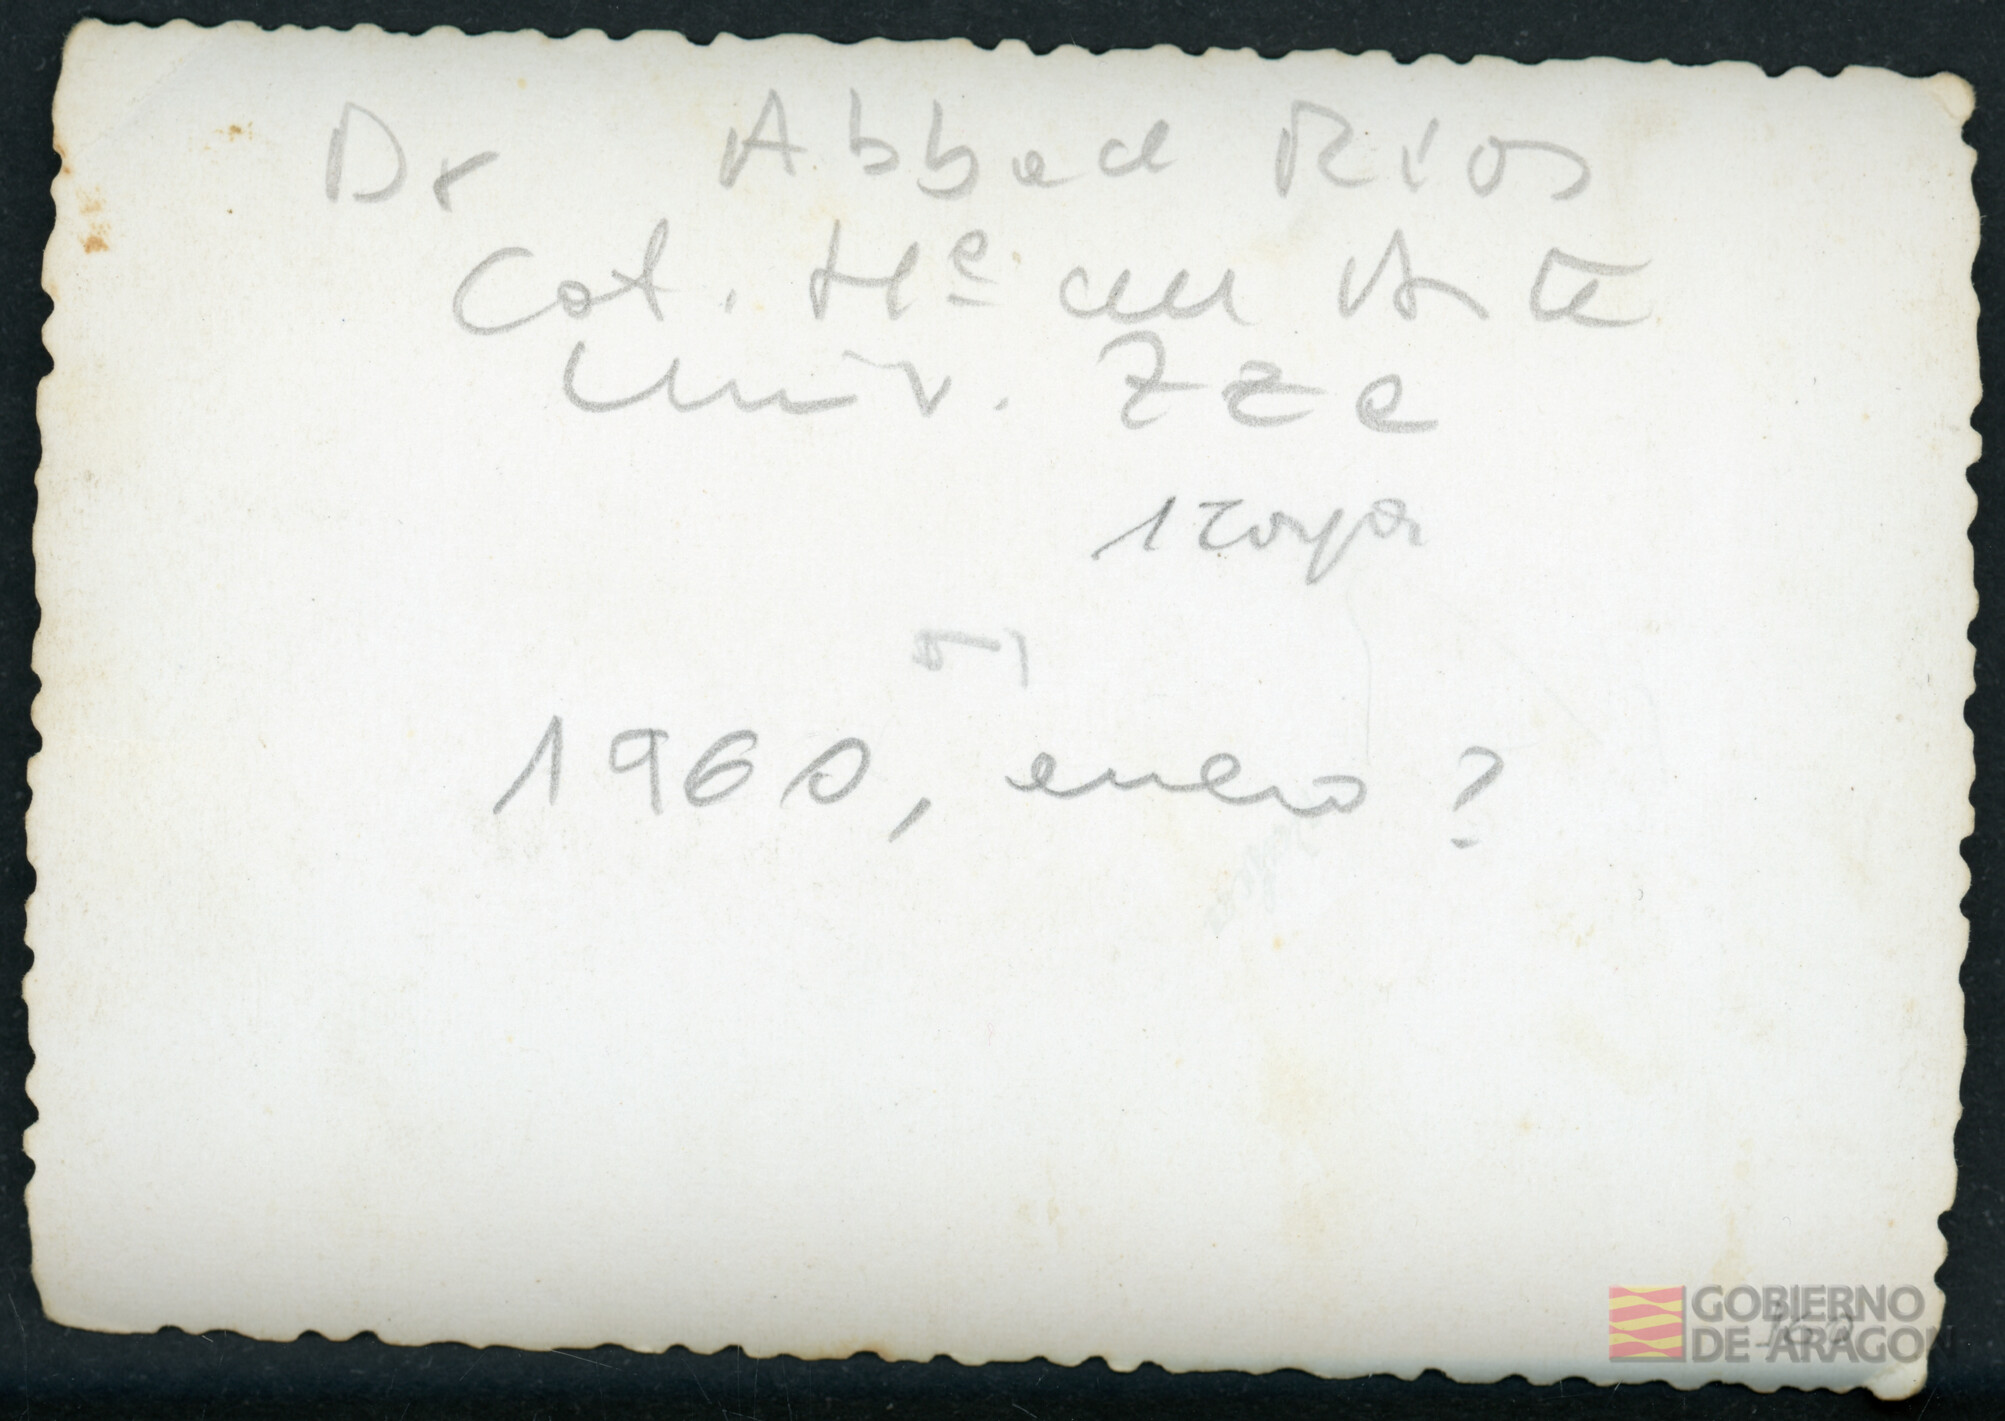 Dr Abbad Rios
Cat. Hª del Arte
Univ. Zza
1960, enero?
GOBIERNO
DE ARAGON